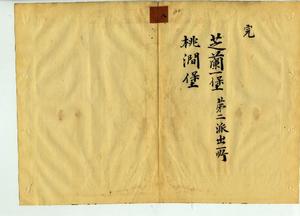 完
芝蘭一堡 第二派出所
桃澗堡